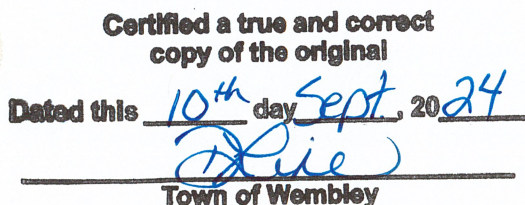 Certified a true and correct
copy of the original
Dated this 10th day Sept., 2024
Town of Wembley